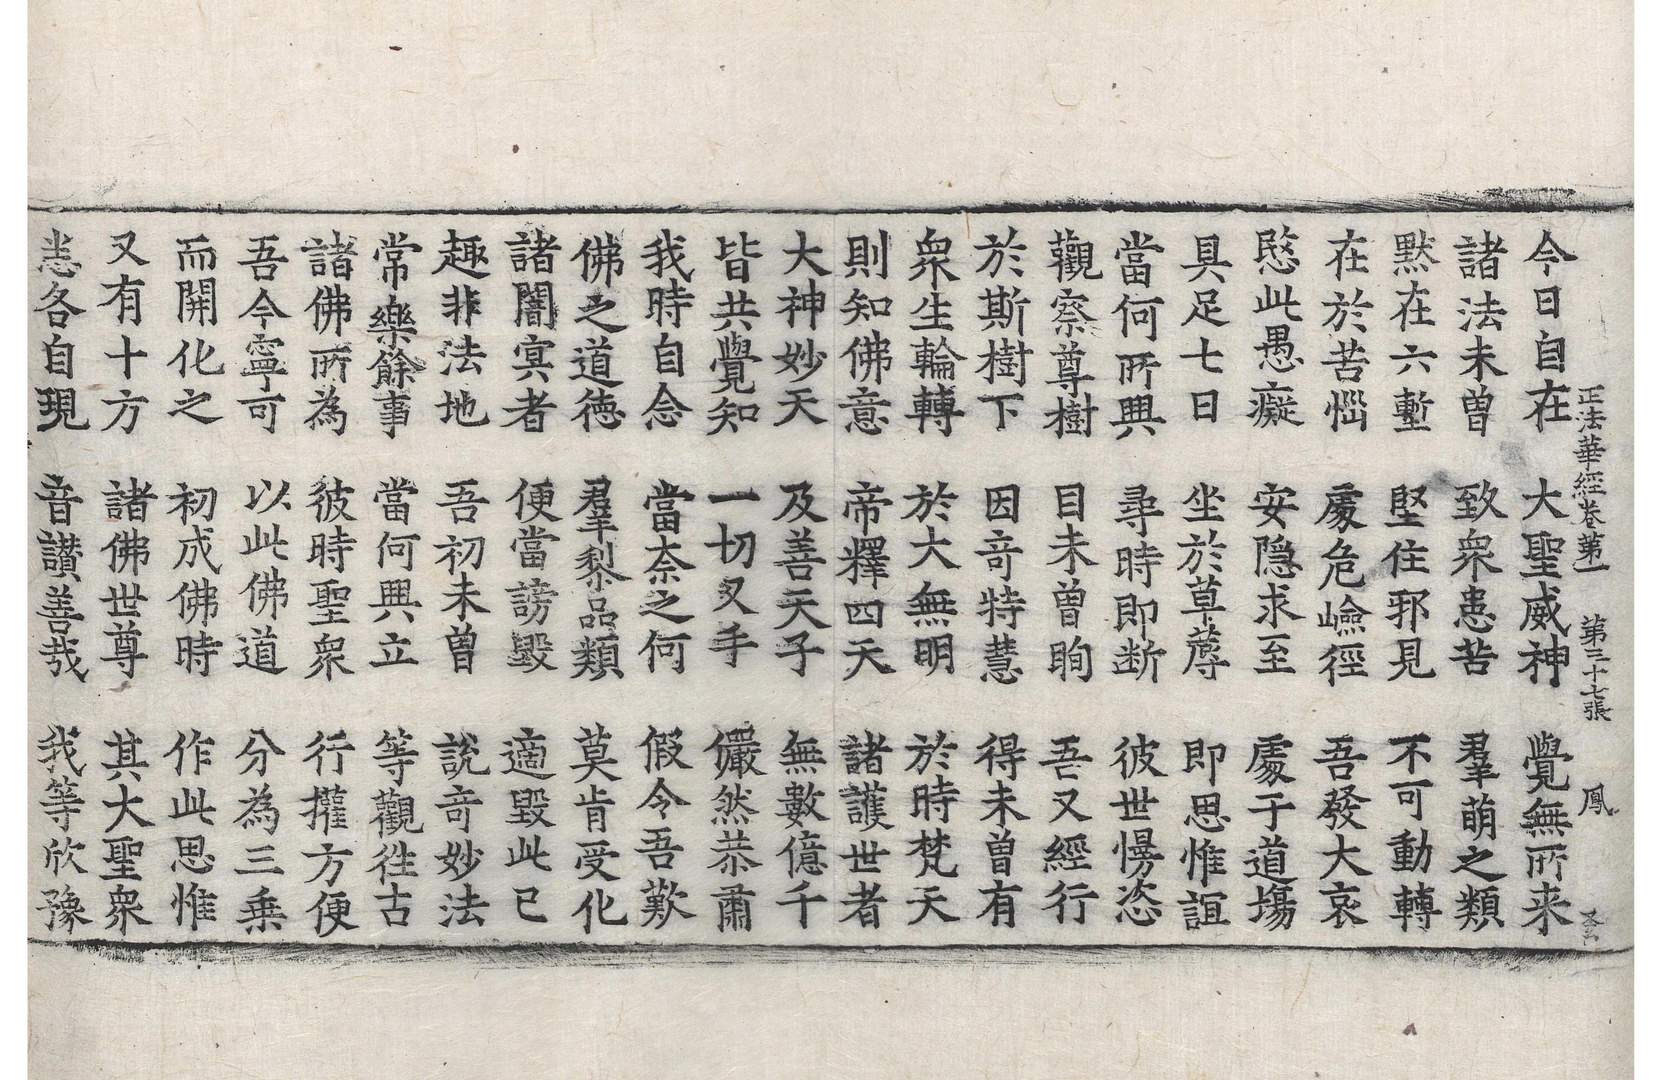 正法華經卷第一 第三十七張 鳳
今日自在 大聖威神 覺無所来
諸法未曾 致衆患苦 羣萌之類
黙在六塹 堅住邪見 不可動轉
在於苦惱 處危嶮徑 吾發大哀
愍此愚癡 安隱求至 處于道場
具足七日 坐於草蓐 即思惟誼
當何所興 尋時即断 彼世愣恣
觀察尊樹 目未曾眴 吾又經行
於斯樹下 因竒特慧 得未曾有
衆生輪轉 於大無明 於時梵天
則知佛意 帝釋四天 諸護世者
大神妙天 及善天子 無數億千
皆共覺知 一切叉手 儼然恭肅
我時自念 當柰之何 假令吾歎
佛之道徳 羣黎品類 莫肯受化
諸闇冥者 便當謗毀 適毀此已
趣非法地 吾初未曾 說竒妙法
常樂餘事 當何興立 等觀徃古
諸佛所為 彼時聖衆 行攉方便
吾今寧可 以此佛道 分為三乗
而開化之 初成佛時 作此思惟
又有十方 諸佛世尊 其大聖衆
悉各自現 音讃善哉 我等欣豫